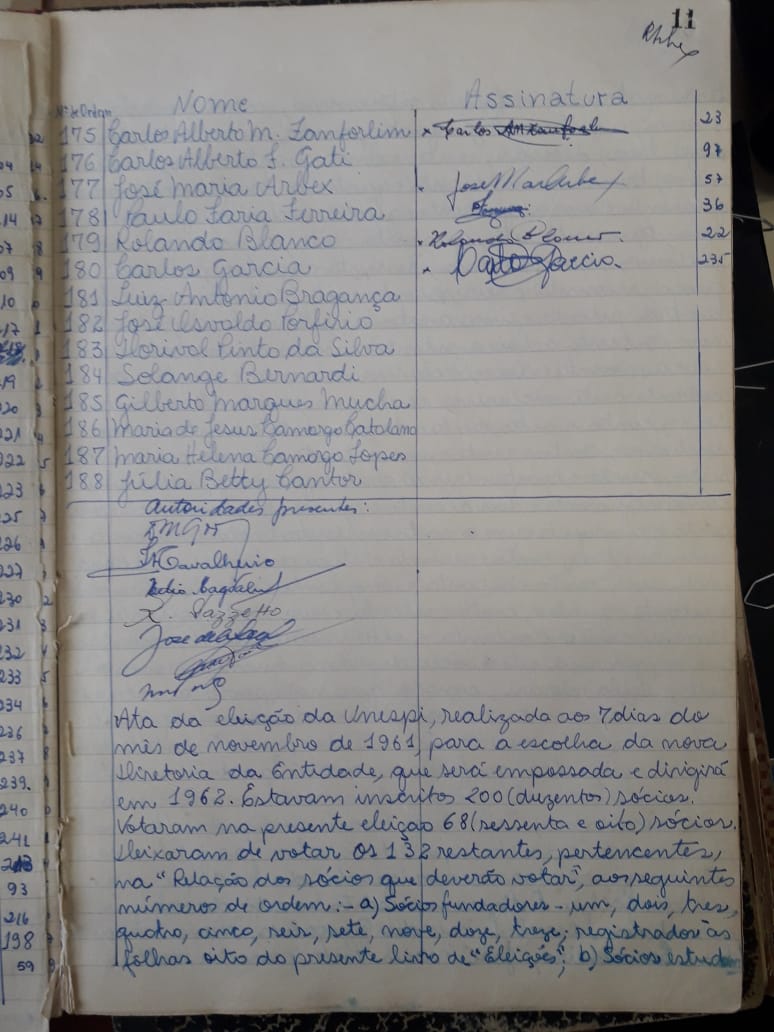 11
Nº de Ordem Nome Assinatura
175 Carlos Alberto M. Zanforlim × Carlos 23
176 Carlos Alberto F. Gati 97
177 José Maria Arbex José Mar Arbex 57
178 Paulo Faria Ferreira 36
179 Rolando Blanco × Rolando Blanco 22
180 Carlos Garcia × Carlos Garcia 235
181 Luiz Antonio Bragança
182 José Osvaldo Porfirio
183 Dorival Pinto da Silva
184 Solange Bernardi
185 Gilberto Marques Mucha
186 Maria de Jesus Camargo Catalano
187 Maria Helena Camargo Lopes
188 Júlia Betty Cantor
Autoridades presentes:
Cavalheiro
José
Ata da eleição da Unespi, realizada aos 7 dias do
mês de novembro de 1961, para a escolha da nova
Diretoria da Entidade, que será empossada e dirigirá
em 1962. Estavam inscritos 200 (duzentos) sócios.
Votaram na presente eleição 68 (sessenta e oito) sócios.
Deixaram de votar os 132 restantes, pertencentes,
na "Relação dos sócios que deverão votar", aos seguintes
números de ordem: - a) Sócios fundadores - um, dois, tres,
quatro, cinco, seis, sete, nove, doze, treze; registrados às
folhas oito do presente livro de "Eleições"; b) Sócios estud
04
05
14
07
09
10
17
19
220
221
222
223
225
226
227
230
231
232
233
234
236
237
239
240
241
93
216
198
59